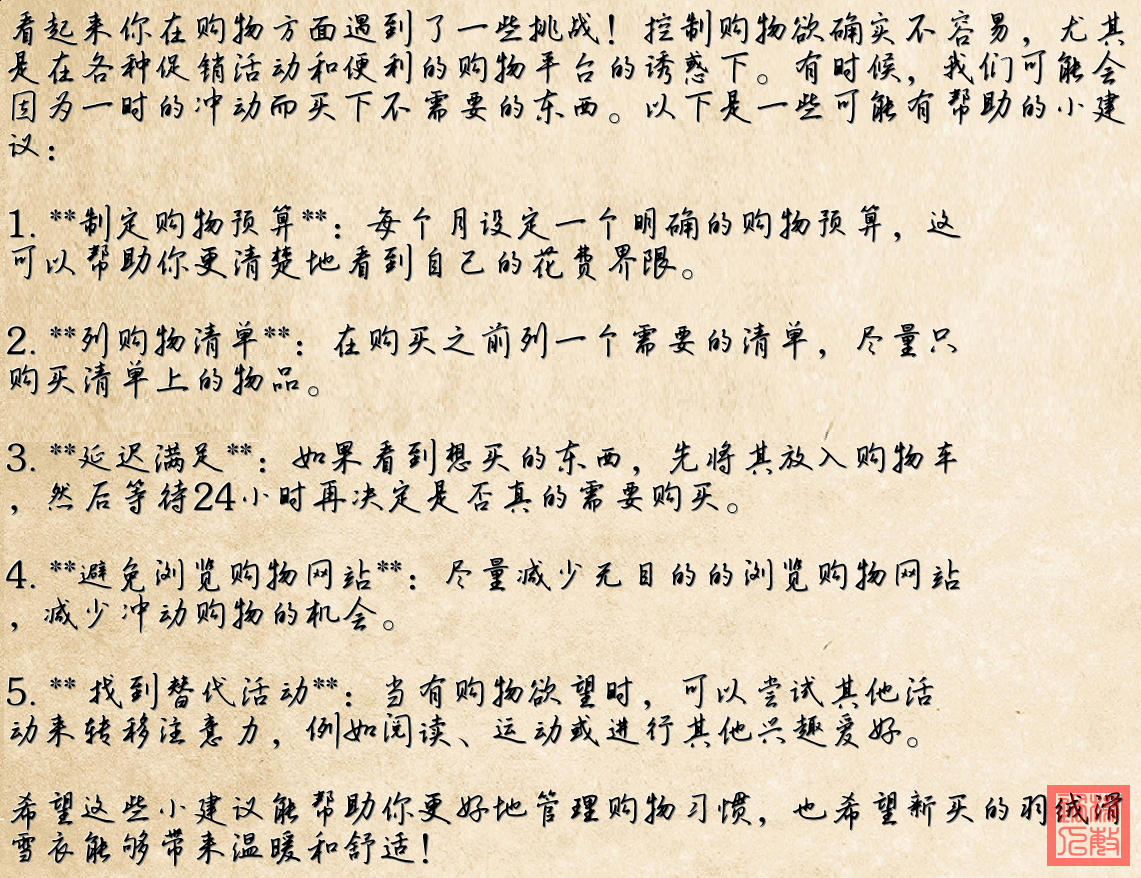 看起来你在购物方面遇到了一些挑战！控制购物欲确实不容易，尤其
是在各种促销活动和便利的购物平台的诱惑下。有时候，我们可能会
因为一时的冲动而买下不需要的东西。以下是一些可能有帮助的小建
议：
1. **制定购物预算**：每个月设定一个明确的购物预算，这
可以帮助你更清楚地看到自己的花费界限。
2. **列购物清单**：在购买之前列一个需要的清单，尽量只
购买清单上的物品。
3. **延迟满足**：如果看到想买的东西，先将其放入购物车
，然后等待24小时再决定是否真的需要购买。
4. **避免浏览购物网站**：尽量减少无目的的浏览购物网站
，减少冲动购物的机会。
5. ** 找到替代活动**：当有购物欲望时，可以尝试其他活
动来转移注意力，例如阅读、运动或进行其他兴趣爱好。
希望这些小建议能帮助你更好地管理购物习惯，也希望新买的羽绒滑
雪衣能够带来温暖和舒适！